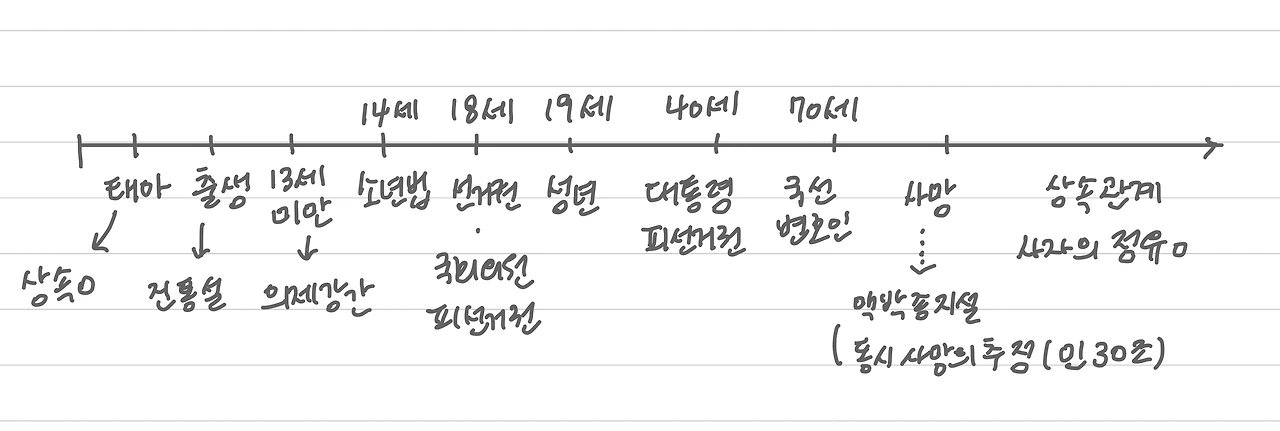 14세 18세 19세 40세 70세
태아 출생 13세 미만 소년법 선거권 성년 대통령 피선거권 국선 변호인 사망 상속관계
사자의 점유O
상속O 진통설 의제강간 · 국회의원 피선거권
맥박종지설
(동시사망의 추정(민30조)